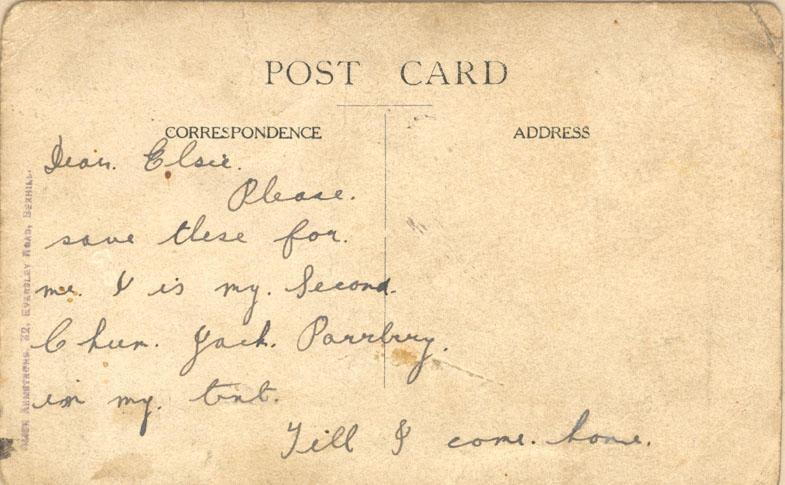 POST CARD
CORRESPONDENCE
ADDRESS
Dear. Elsie.
Please.
save these for.
me. & is my. Second.
Chum. Jack. Parrbry.
in my. tent.
Till I come. home.
ARMSTRONG, 22, EVERSLEY ROAD, BEXHILL.